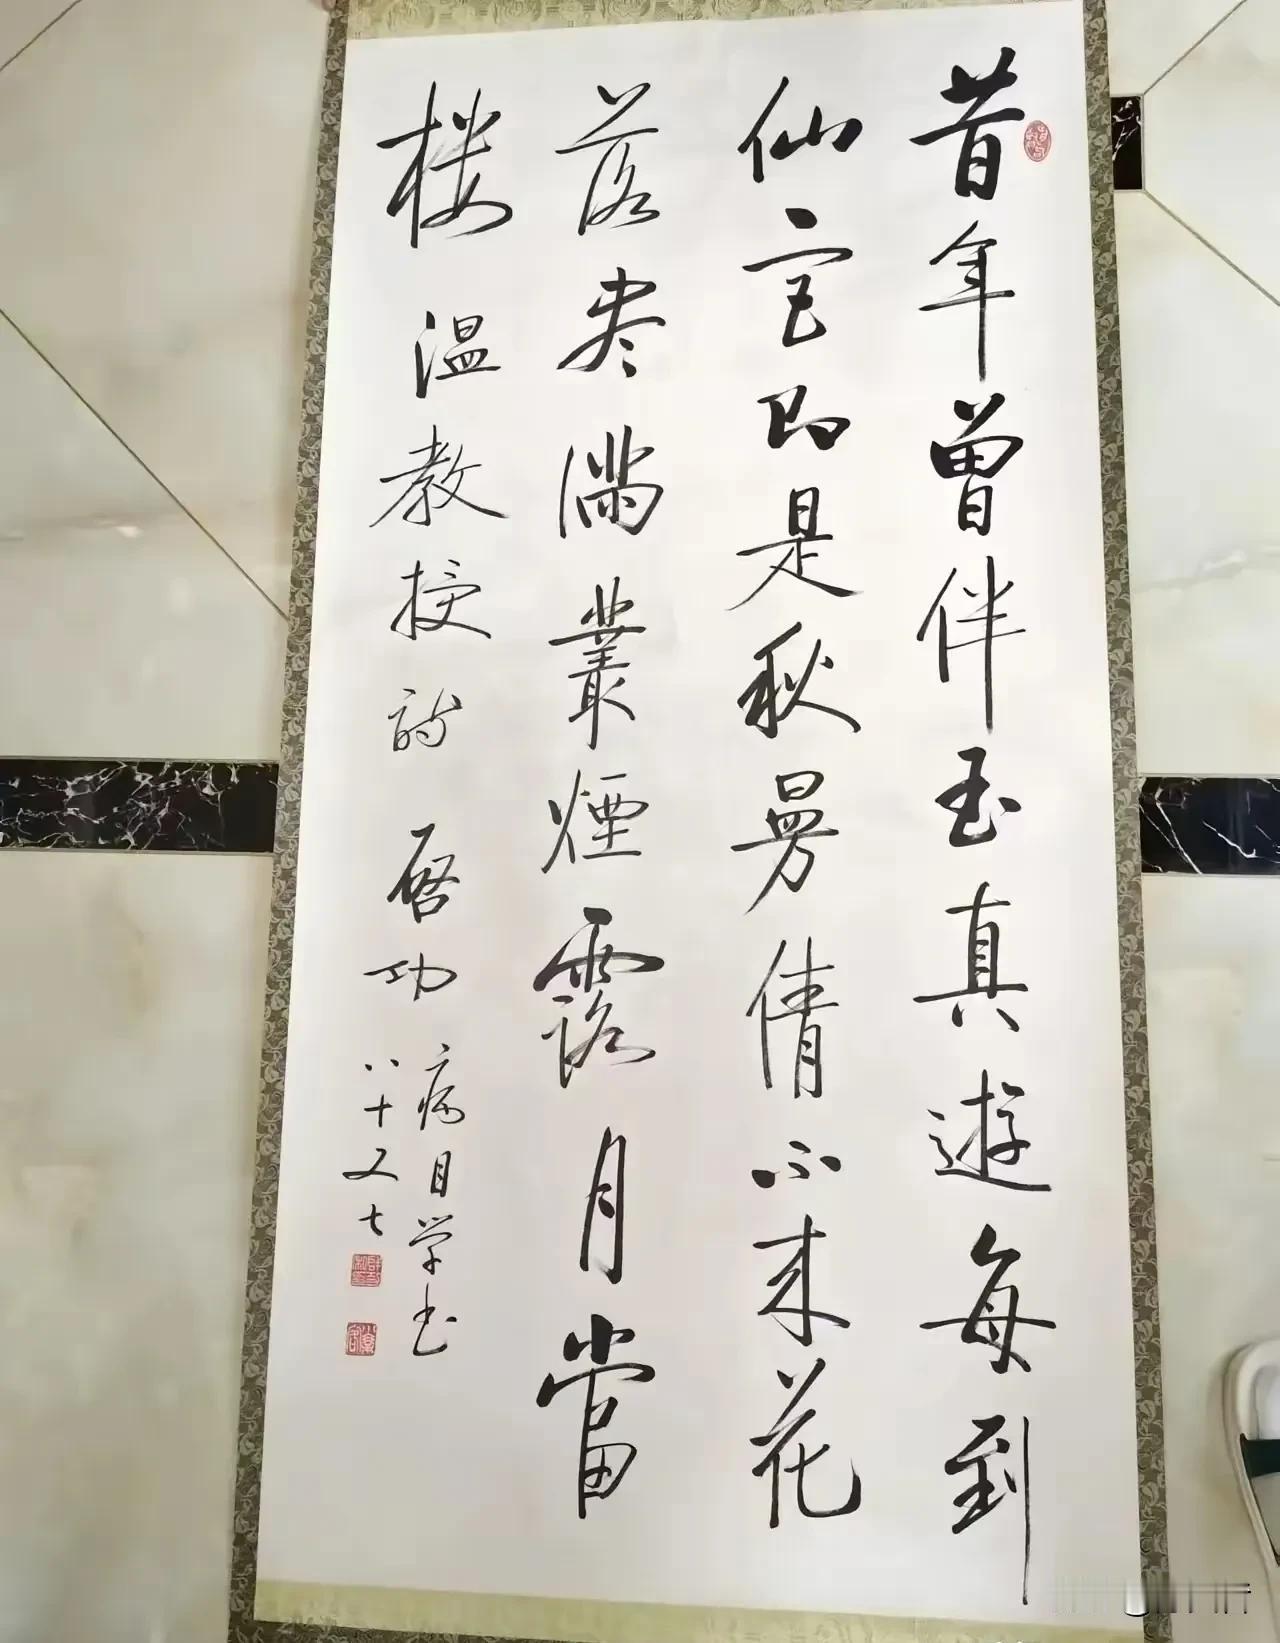 昔年曾伴玉真遊每到
仙宮即是秋曼倩不来花
落尽满叢煙露月當
楼 温教授詩 啓功
病目学书
八十又七